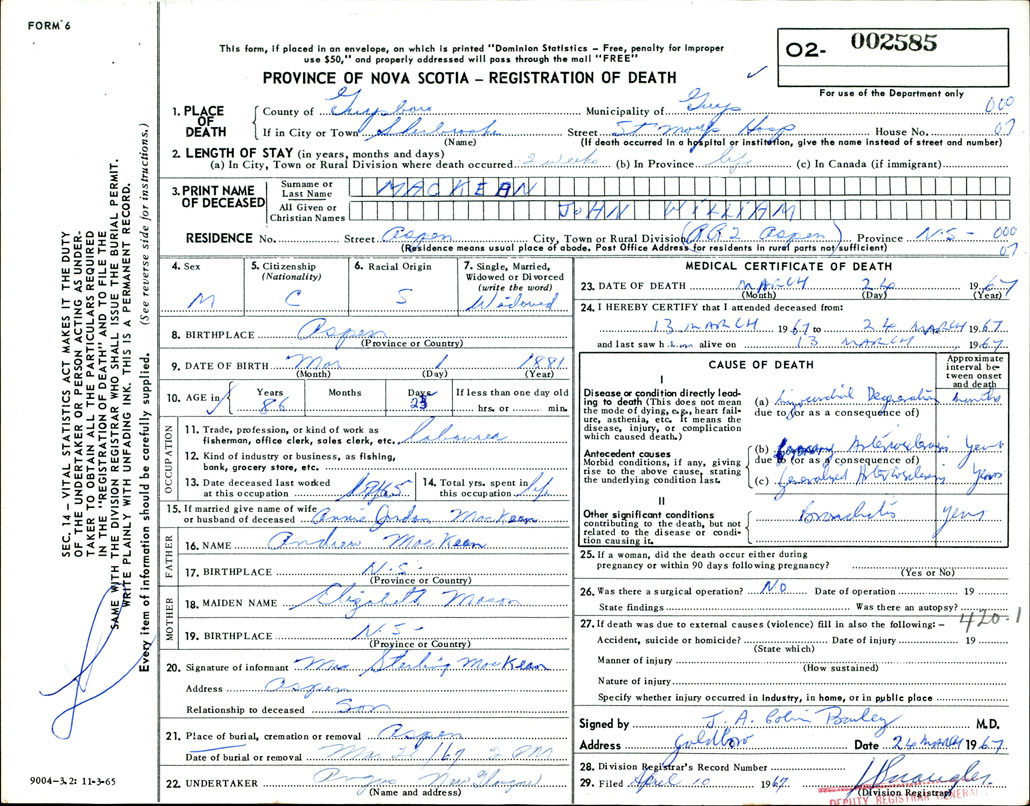 FORM 6
This form, if placed in an envelope, on which is printed "Dominion Statistics – Free, penalty for improper
use $50," and properly addressed will pass through the mail "FREE"
PROVINCE OF NOVA SCOTIA – REGISTRATION OF DEATH
O2- 002585
For use of the Department only
SEC. 14 – VITAL STATISTICS ACT MAKES IT THE DUTY
OF THE UNDERTAKER OR PERSON ACTING AS UNDER-
TAKER TO OBTAIN ALL THE PARTICULARS REQUIRED
IN THE "REGISTRATION OF DEATH" AND TO FILE THE
SAME WITH THE DIVISION REGISTRAR WHO SHALL ISSUE THE BURIAL PERMIT.
WRITE PLAINLY WITH UNFADING INK. THIS IS A PERMANENT RECORD.
Every item of information should be carefully supplied. (See reverse side for instructions.)
1. PLACE OF DEATH
County of Guysboro Municipality of Guys 000
If in City or Town Sherbrooke Street St Marys Hosp House No. 07
(Name) (If death occurred in a hospital or institution, give the name instead of street and number)
2. LENGTH OF STAY (in years, months and days)
(a) In City, Town or Rural Division where death occurred 2 weeks (b) In Province life (c) In Canada (if immigrant)
3. PRINT NAME OF DECEASED
Surname or Last Name MACKEAN
All Given or Christian Names JOHN WILLIAM
RESIDENCE No. Street Aspen City, Town or Rural Division (RR2 Aspen) Province N.S- 000
(Residence means usual place of abode. Post Office Address for residents in rural parts not sufficient) 07
4. Sex M
5. Citizenship (Nationality) C
6. Racial Origin S
7. Single, Married, Widowed or Divorced (write the word) Widowed
8. BIRTHPLACE Aspen
(Province or Country)
9. DATE OF BIRTH Mar 1 1881
(Month) (Day) (Year)
10. AGE in Years 86 Months Days 23 If less than one day old hrs. or min.
OCCUPATION
11. Trade, profession, or kind of work as
fisherman, office clerk, sales clerk, etc. labourer
12. Kind of industry or business, as fishing,
bank, grocery store, etc.
13. Date deceased last worked at this occupation 1965
14. Total yrs. spent in this occupation life
15. If married give name of wife
or husband of deceased Annie Jordan MacKean
FATHER
16. NAME Andrew MacKeen
17. BIRTHPLACE N.S-
(Province or Country)
MOTHER
18. MAIDEN NAME Elizabeth Mason
19. BIRTHPLACE N.S-
(Province or Country)
20. Signature of informant Mrs Sterling MacKean
Address Aspen
Relationship to deceased Son
21. Place of burial, cremation or removal Aspen
Date of burial or removal Mar 27/67 2 PM
22. UNDERTAKER New Glasgow
(Name and address)
9004-3.2: 11-3-65
MEDICAL CERTIFICATE OF DEATH
23. DATE OF DEATH MARCH 24 1967
(Month) (Day) (Year)
24. I HEREBY CERTIFY that I attended deceased from:
13 MARCH 1967 to 24 MARCH 1967
and last saw him alive on 13 MARCH 1967
CAUSE OF DEATH
Approximate interval between onset and death
I
Disease or condition directly lead-
ing to death (This does not mean
the mode of dying, e.g., heart fail-
ure, asthenia, etc. It means the
disease, injury, or complication
which caused death.)
(a) Myocardial Degeneration months
due to (or as a consequence of)
Antecedent causes
Morbid conditions, if any, giving
rise to the above cause, stating
the underlying condition last.
(b) Coronary Arteriosclerosis Years
due to (or as a consequence of)
(c) generalised Arteriosclerosis Years
II
Other significant conditions
contributing to the death, but not
related to the disease or condi-
tion causing it.
Bronchitis Years
25. If a woman, did the death occur either during
pregnancy or within 90 days following pregnancy?
(Yes or No)
26. Was there a surgical operation? NO Date of operation 19
State findings Was there an autopsy?
420.1
27. If death was due to external causes (violence) fill in also the following: –
Accident, suicide or homicide? Date of injury 19
(State which)
Manner of injury
(How sustained)
Nature of injury
Specify whether injury occurred in industry, in home, or in public place
Signed by J. A. Colin M.D.
Address Goldboro Date 24 MARCH 1967
28. Division Registrar's Record Number
29. Filed April 10 1967
(Division Registrar)
DEPUTY REGISTRAR GENERAL